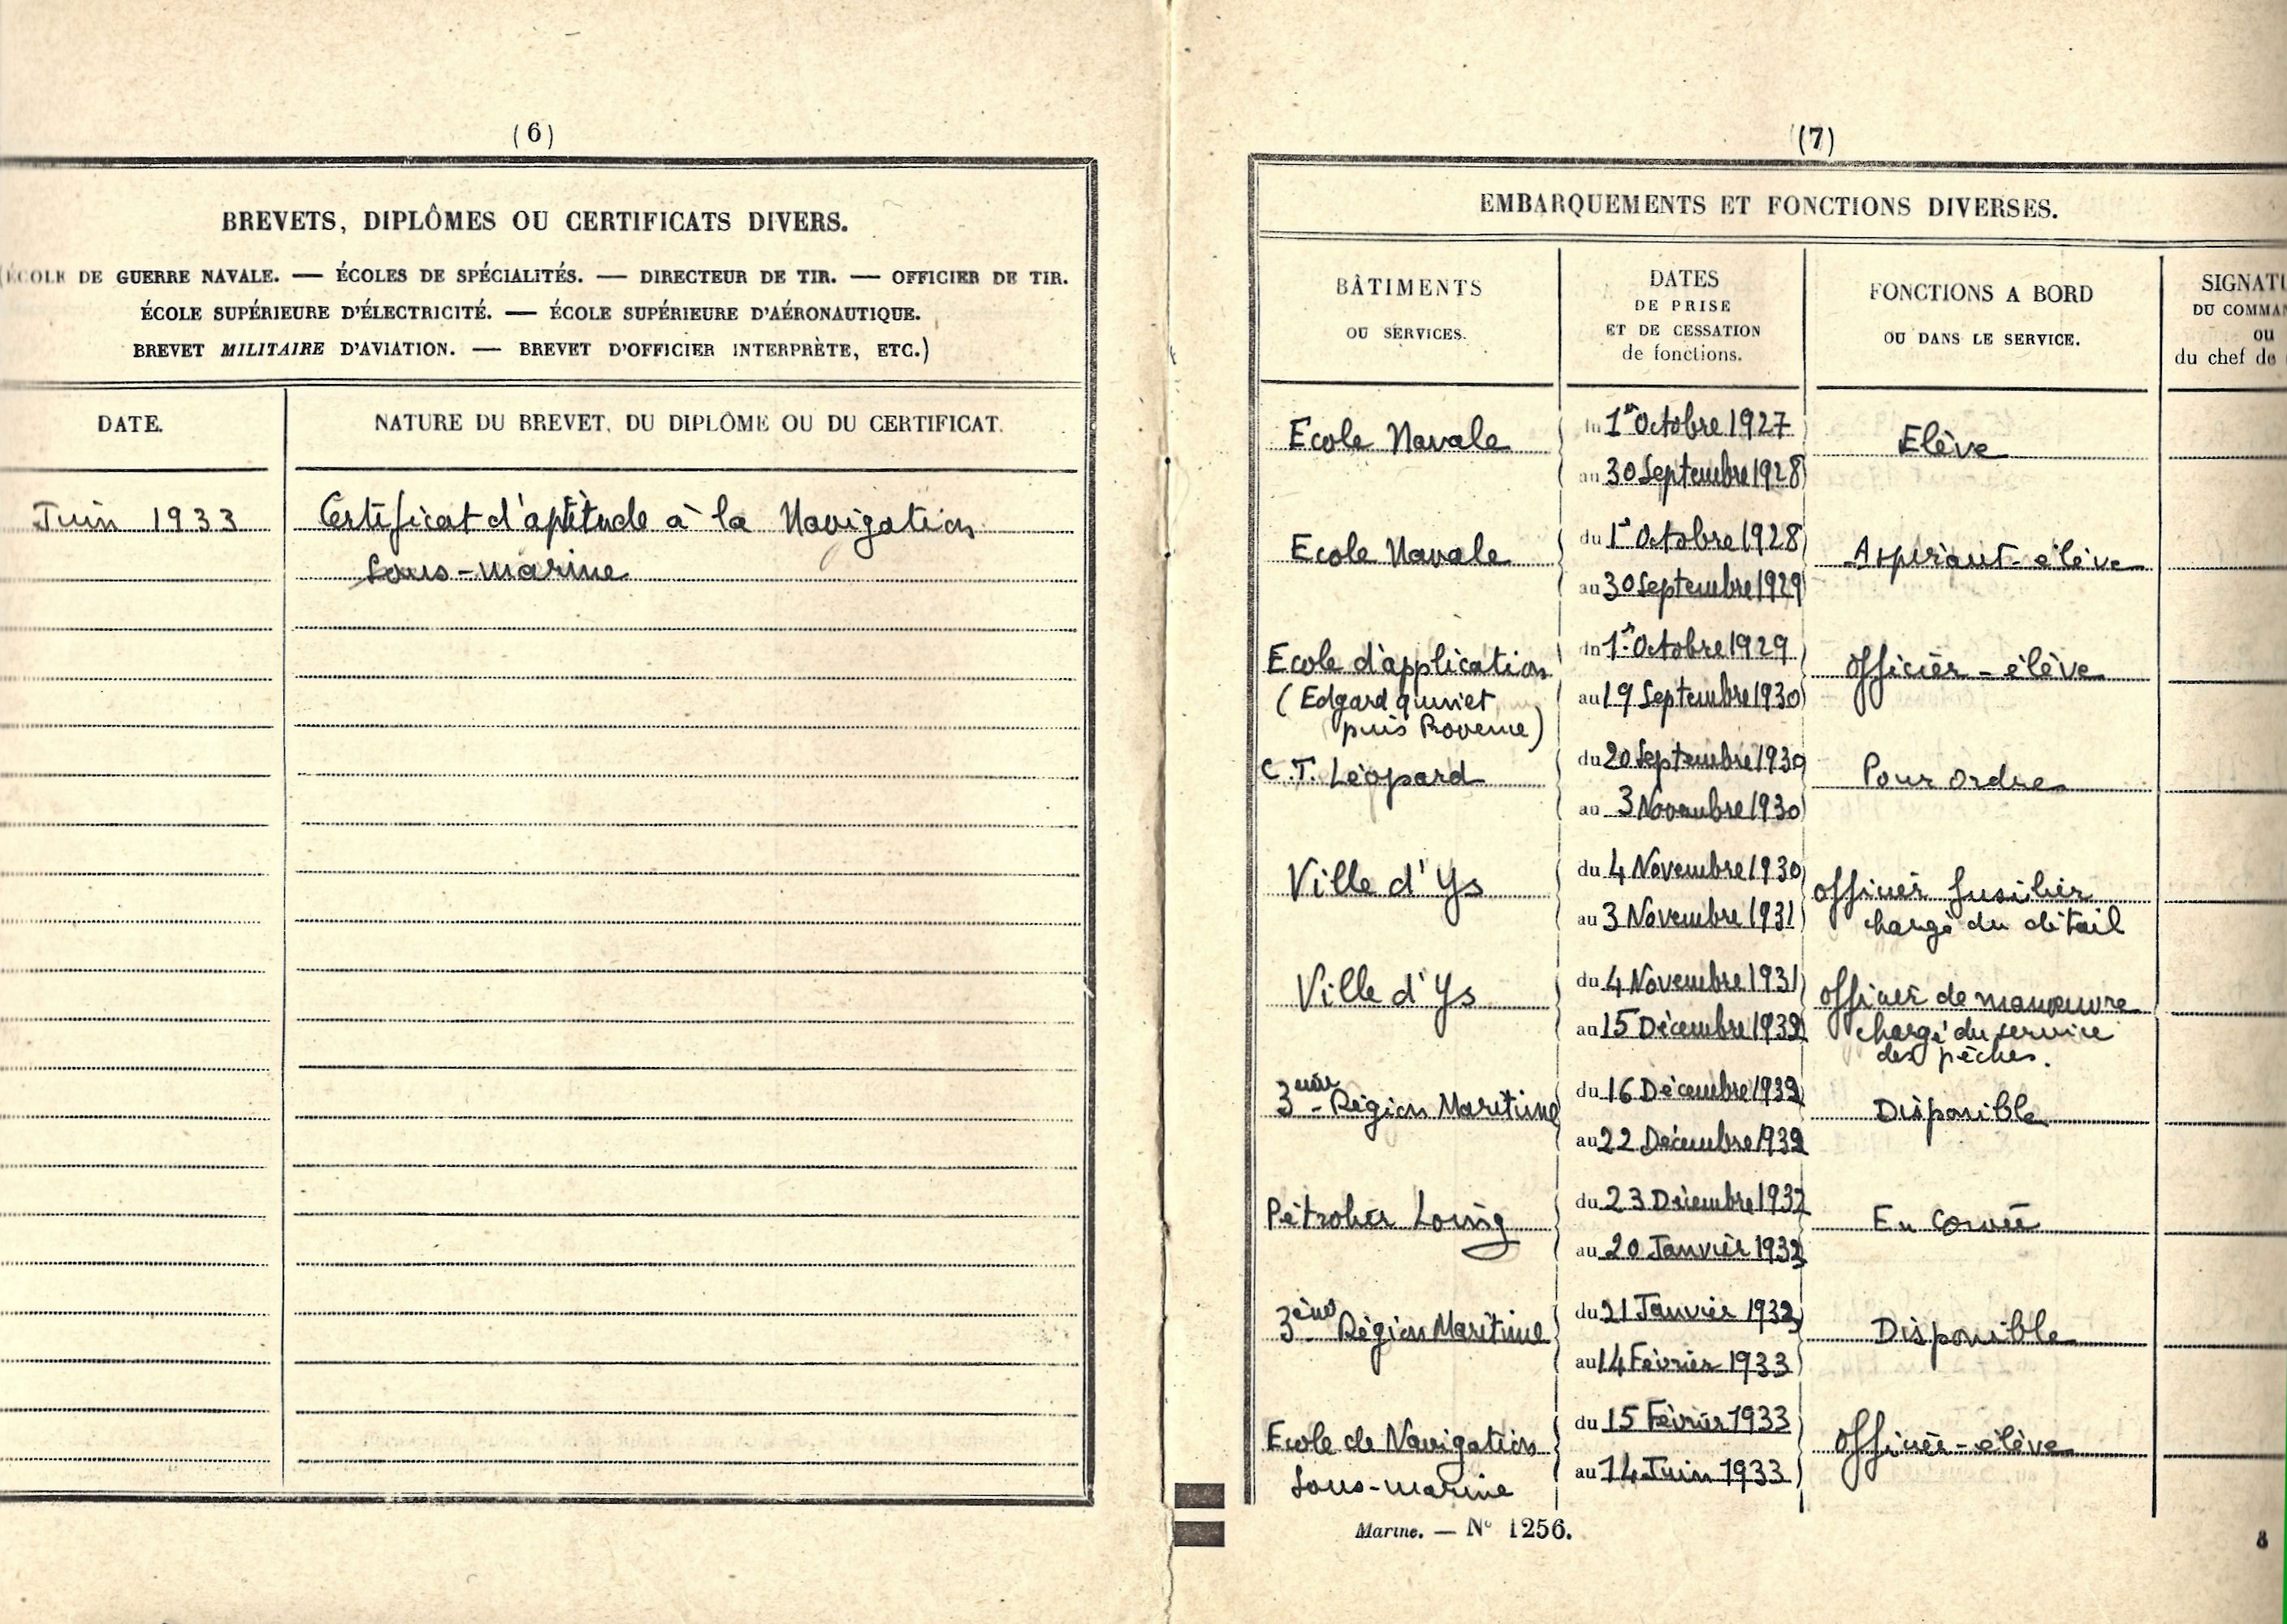 (6)
BREVETS, DIPLÔMES OU CERTIFICATS DIVERS.
(ÉCOLE DE GUERRE NAVALE. — ÉCOLES DE SPÉCIALITÉS. — DIRECTEUR DE TIR. — OFFICIER DE TIR.
ÉCOLE SUPÉRIEURE D'ÉLECTRICITÉ. — ÉCOLE SUPÉRIEURE D'AÉRONAUTIQUE.
BREVET MILITAIRE D'AVIATION. — BREVET D'OFFICIER INTERPRÈTE, ETC.)
DATE. NATURE DU BREVET, DU DIPLÔME OU DU CERTIFICAT.
Juin 1933 Certificat d'aptitude à la Navigation
Sous-marine
(7)
EMBARQUEMENTS ET FONCTIONS DIVERSES.
BÂTIMENTS
OU SERVICES.
DATES
DE PRISE
ET DE CESSATION
de fonctions.
FONCTIONS A BORD
OU DANS LE SERVICE.
SIGNATU
DU COMMAN
ou
du chef de
Ecole Navale
du 1er Octobre 1927
au 30 Septembre 1928
Elève
Ecole Navale
du 1er Octobre 1928
au 30 Septembre 1929
Aspirant-élève
Ecole d'application
(Edgard quinet
puis Provence)
du 1er Octobre 1929
au 19 Septembre 1930
Officier-élève
C.T. Léopard
du 20 Septembre 1930
au 3 Novembre 1930
Pour ordre
Ville d'Ys
du 4 Novembre 1930
au 3 Novembre 1931
Officier fusilier
chargé du détail
Ville d'Ys
du 4 Novembre 1931
au 15 Décembre 1932
Officier de manœuvre
chargé du service
des pêches.
3ème Région Maritime
du 16 Décembre 1932
au 22 Décembre 1932
Disponible
Pétrolier Loing
du 23 Décembre 1932
au 20 Janvier 1933
En corvée
3ème Région Maritime
du 21 Janvier 1933
au 14 Février 1933
Disponible
Ecole de Navigation
Sous-marine
du 15 Février 1933
au 14 Juin 1933
Officier-élève
Marine. — N° 1256.